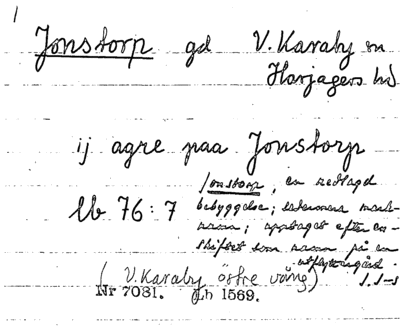 1
Jonstorp gd V. Karaby sn
Harjagers hd
ij agre paa Jonstorp
Jonstorp, en nedlagd
Lb 76:7 bebyggelse; sedermera mark-
namn; upptaget efter en-
skiftet som namn på en
utflyttargård.
J. S-s
( V. Karaby östre vång)
Nr 7081. Lh 1569.